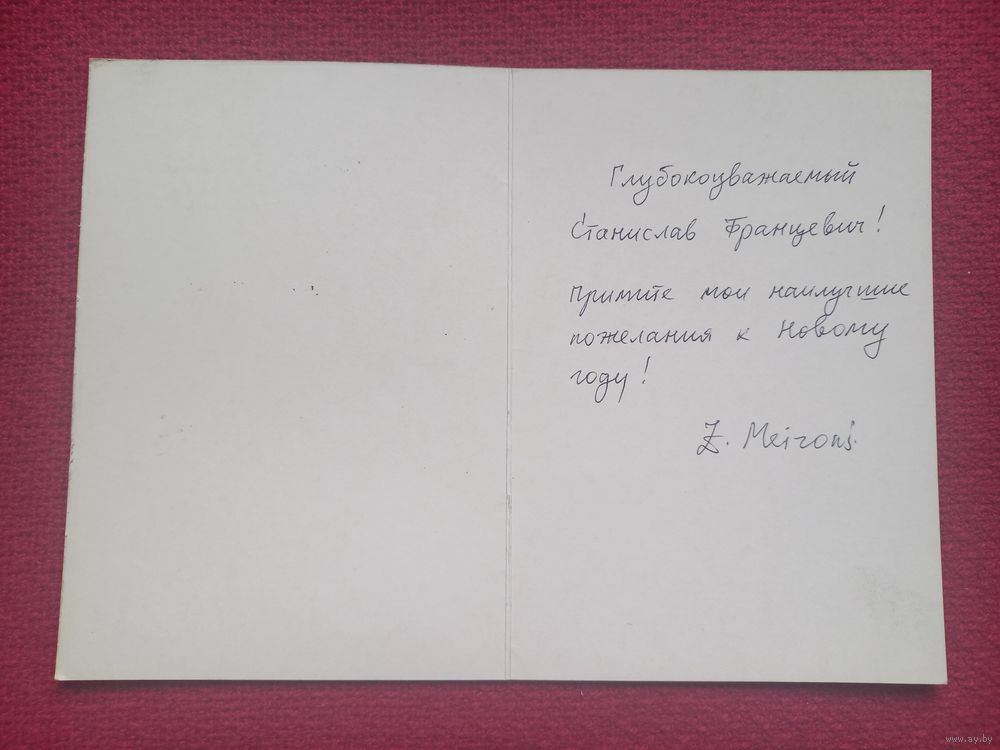 Глубокоуважаемый
Станислав Францевич!
Примите мои наилучшие
пожелания к Новому
году!
Z. Meirons
www.ay.by